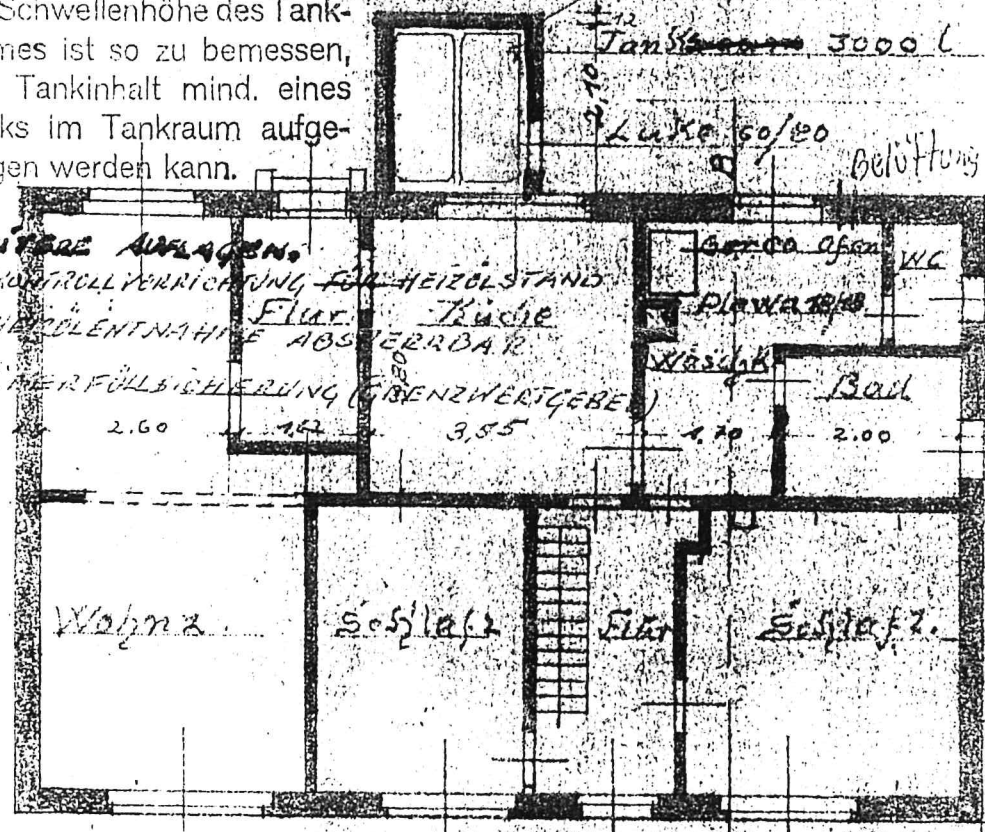 Schwellenhöhe des Tank-
mes ist so zu bemessen,
Tankinhalt mind. eines
ks im Tankraum aufge-
gen werden kann.
12
Tank 3000 l
2,10
Luke 60/80
Belüftung
AUFLAGEN:
KONTROLLVORRICHTUNG FÜR HEIZÖLSTAND
ÖLENTNAHME ABSPERRBAR
ÜBERFÜLLSICHERUNG (GRENZWERTGEBER)
Flur
Küche
Ofen
WC
Plewa 18/18
Waschk
Bad
2.60
1,62
3,55
1,70
2.00
Wohnz.
Schlafz
Flur
Schlafz.